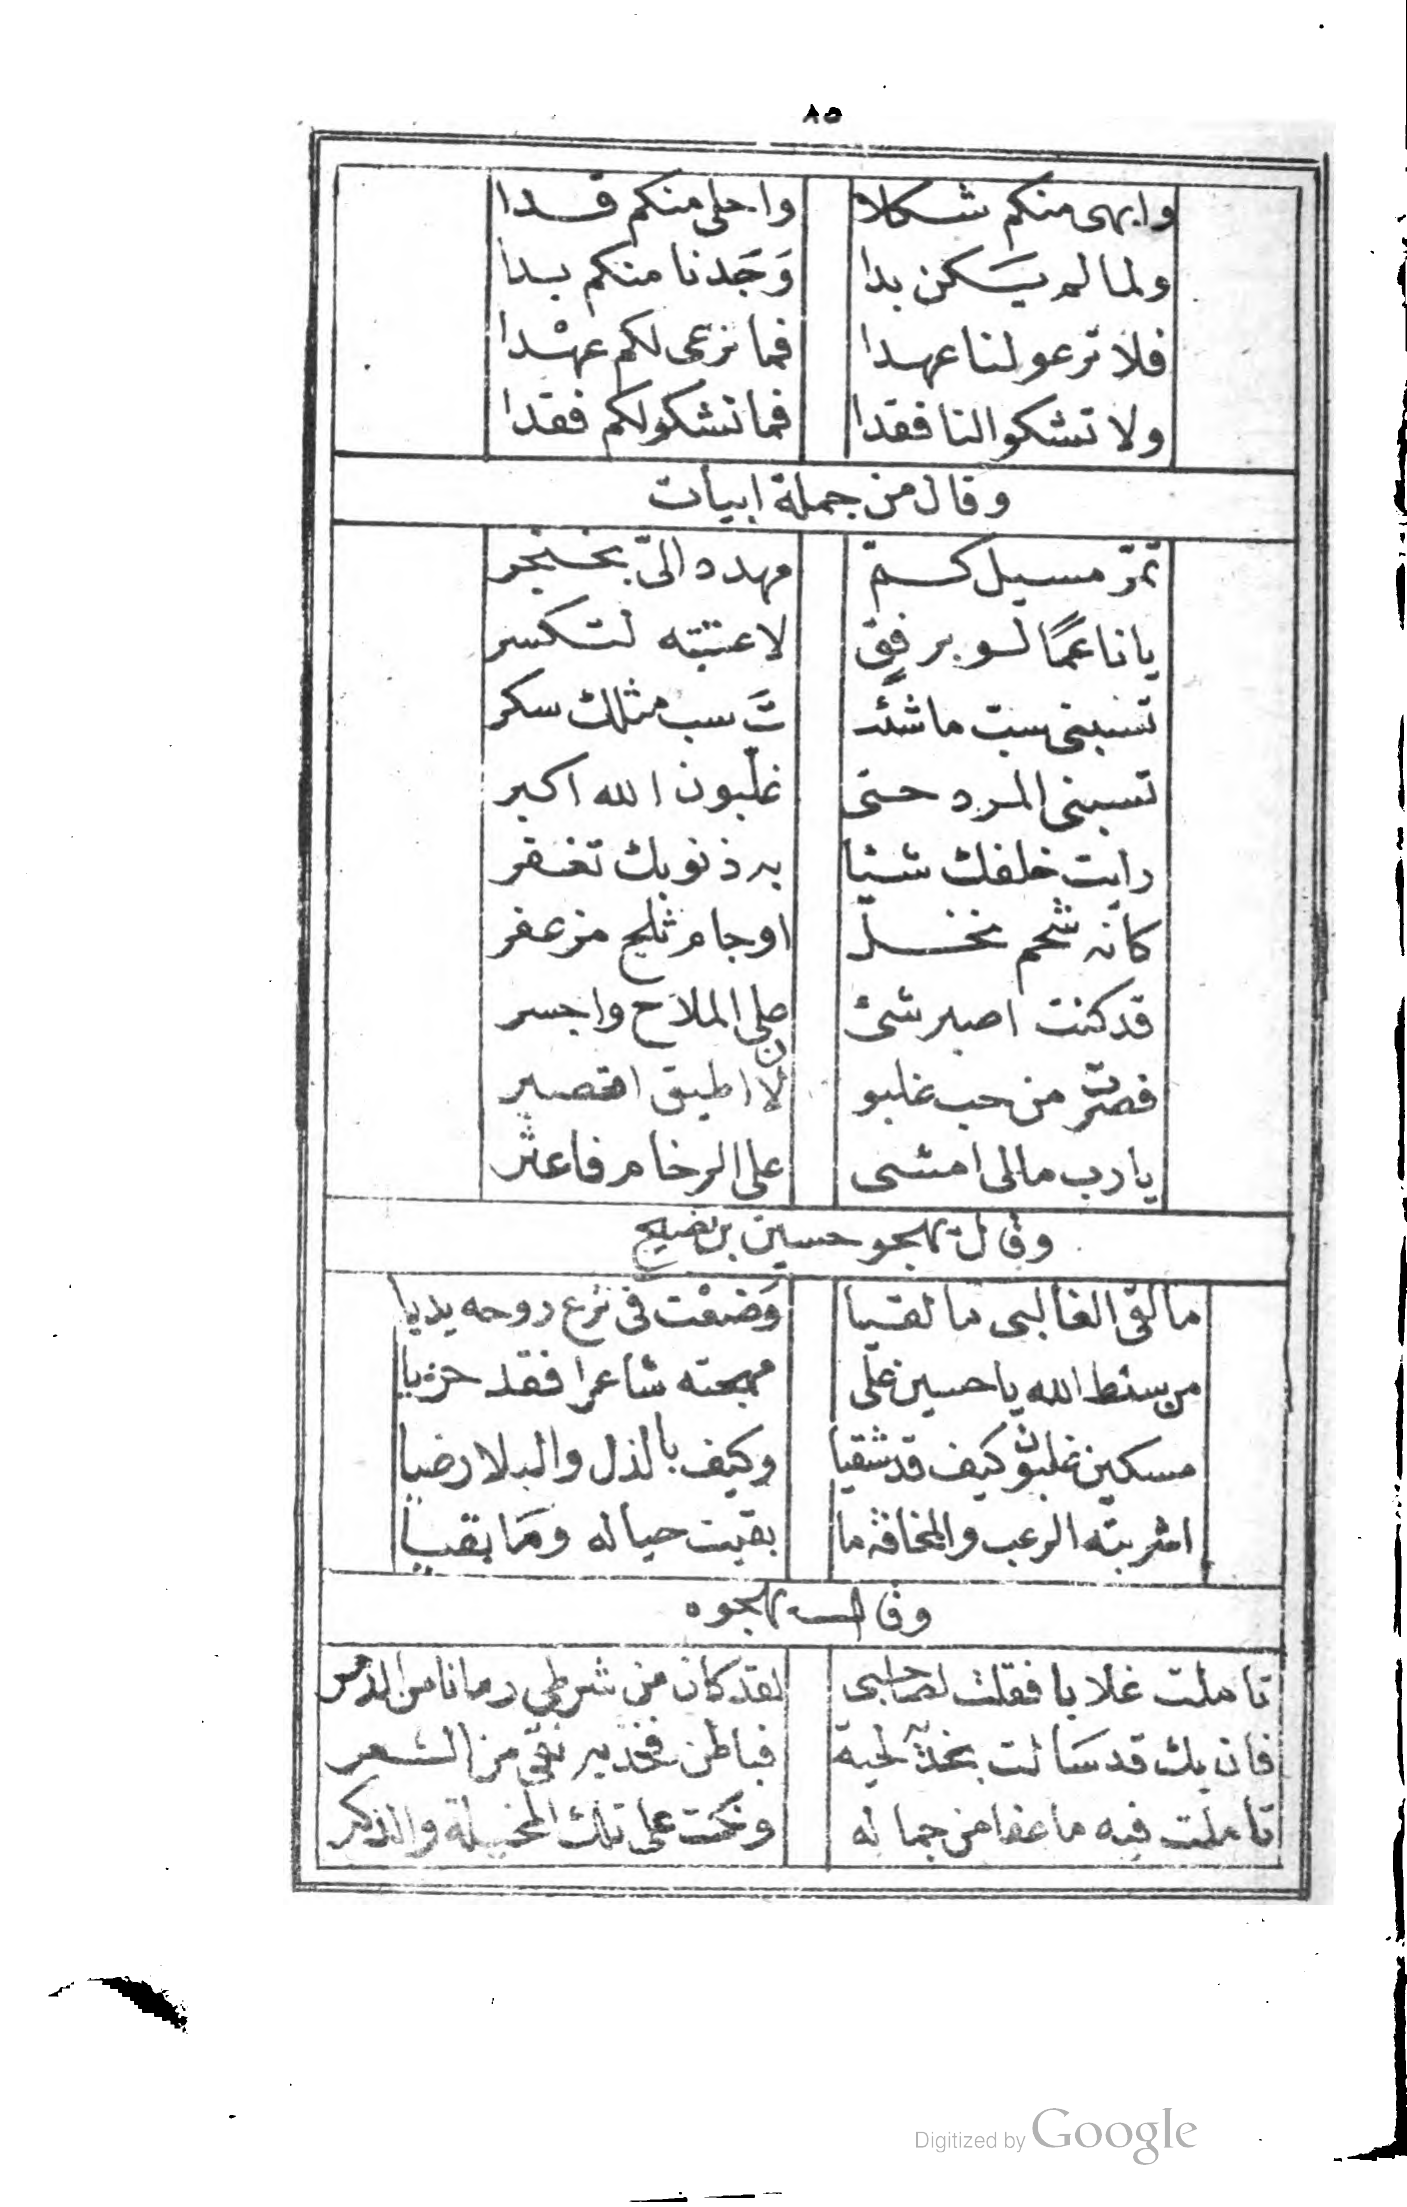 ٨٥
وابهى منكم شكلا واحلى منكم قدا
ولما لم يكن بدا وَجَدنا منكم بدا
فلا ترعو لنا عهدا فما نرعى لكم عهْدا
ولا تشكوا لنا فقدا فما نشكو لكم فقدا
وقال من جملة ابيات
تمرّ مسبل كمّ مهدد الىّ بخنجر
يا ناعمًا لو برفقٍ لاعتبته لتكسر
تسبنى سبّ ما شئـ ـتَ سب مثلك سكر
تسبنى المرد حتى غلّبون الله اكبر
رايت خلفك شيئا به ذنوبك تغفر
كانّه شحم نخل او جام ثلج مزعفر
قد كنت اصبر شئ على الملاح واجسر
فصرت من حب غلبو ن لا اطيق اتصبر
يا رب مالى امشى على الرخام فاعثر
وقال يهجو حسين بن نضيج
ما لقى الغالبى ما لقيا وَضعْت فى نزع روحه يديا
من سلط الله يا حسين على مهجته شاعرا فقد خزيا
مسكين غلبون كيف قد شقيا وكيف بالذل والبلا رضيا
اشربته الرعب والمخافة ما بقيت حيا له ومَا بقيا
وقال يهجوه
تاملت غلابا فقلت لصاحبى لقد كان من شرطى زمانا من الدهر
فان يك قد سَالت بخديه لحية فباطن فخذيه نقى من الشعر
تاملت فيه ما عفا من جماله ونحت على تلك المخيلة والذكر
Digitized by Google